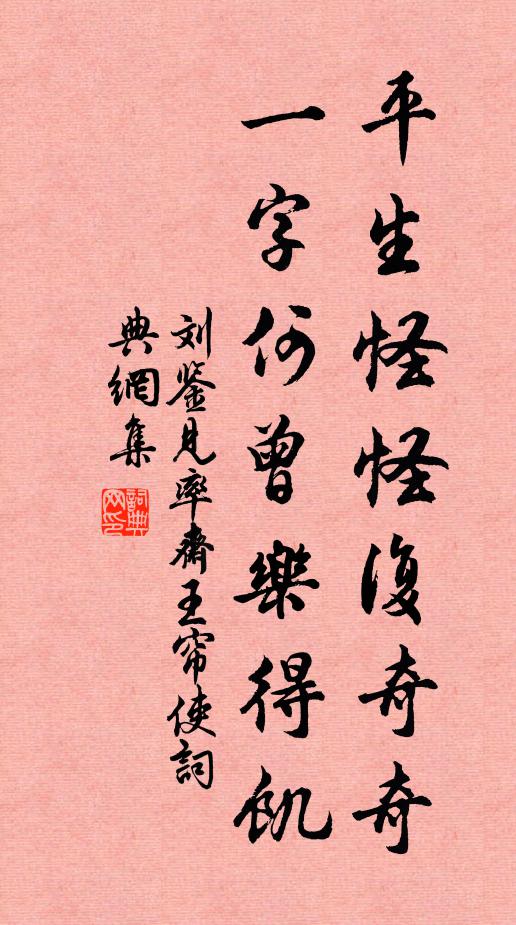 平生怪怪復奇奇
一字何曾樂得飢
刘鉴見率齋王帘使詞
典網集
詞典網印